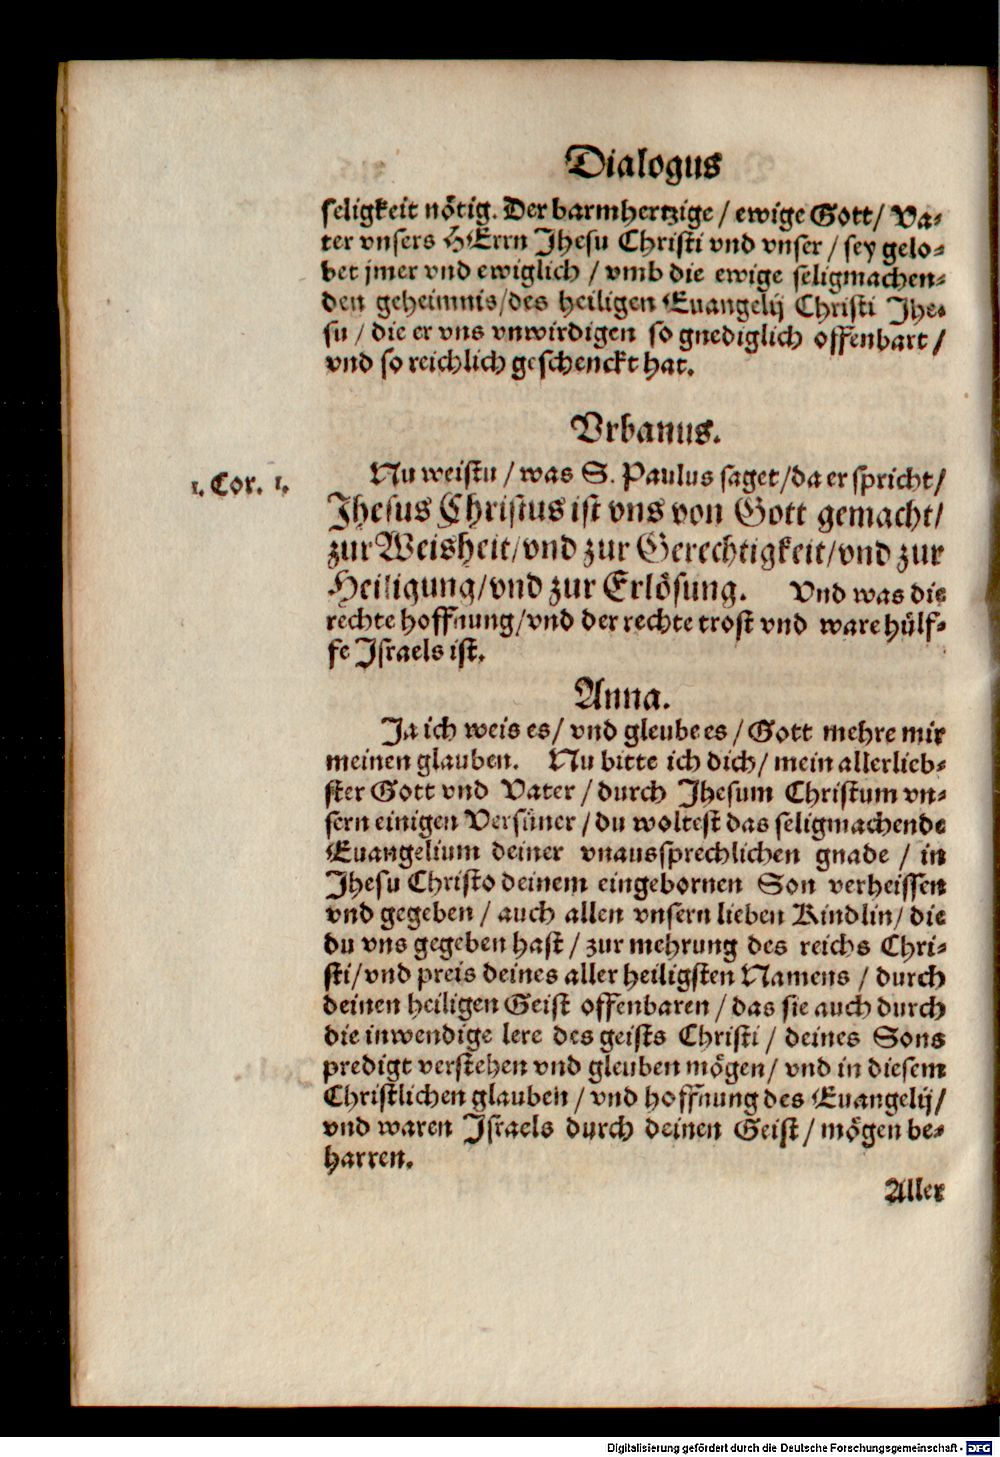 Dialogus
seligkeit nötig. Der barmhertzige / ewige Gott / Va-
ter vnsers HErrn Jhesu Christi vnd vnser / sey gelo-
bet jmer vnd ewiglich / vmb die ewige seligmachen-
den geheimnis / des heiligen Euangelij Christi Jhe-
su / die er vns vnwirdigen so gnediglich offenbart /
vnd so reichlich geschenckt hat.
Vrbanus.
1. Cor. 1.
Nu weistu / was S. Paulus saget / da er spricht /
Jhesus Christus ist vns von Gott gemacht /
zur Weisheit / vnd zur Gerechtigkeit / vnd zur
Heiligung / vnd zur Erlösung. Vnd was die
rechte hoffnung / vnd der rechte trost vnd ware hülf-
fe Israels ist.
Anna.
Ja ich weis es / vnd gleube es / Gott mehre mir
meinen glauben. Nu bitte ich dich / mein allerlieb-
ster Gott vnd Vater / durch Jhesum Christum vn-
sern einigen Versüner / du woltest das seligmachende
Euangelium deiner vnaussprechlichen gnade / in
Jhesu Christo deinem eingebornen Son verheissen
vnd gegeben / auch allen vnsern lieben Kindlin / die
du vns gegeben hast / zur mehrung des reichs Chri-
sti / vnd preis deines aller heiligsten Namens / durch
deinen heiligen Geist offenbaren / das sie auch durch
die inwendige lere des geists Christi / deines Sons
predigt verstehen vnd gleuben mögen / vnd in diesem
Christlichen glauben / vnd hoffnung des Euangelij /
vnd waren Israels durch deinen Geist / mögen be-
harren.
Aller
Digitalisierung gefördert durch die Deutsche Forschungsgemeinschaft - DFG